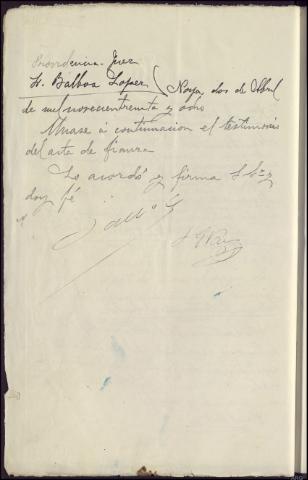 Providencia. Juez
H. Balboa Lopez Noya, dos de Abril
de mil novecientos treinta y ocho
Unase á continuacion el testimonio
del acta de
Lo acordó y firma S Sª y
doy fé